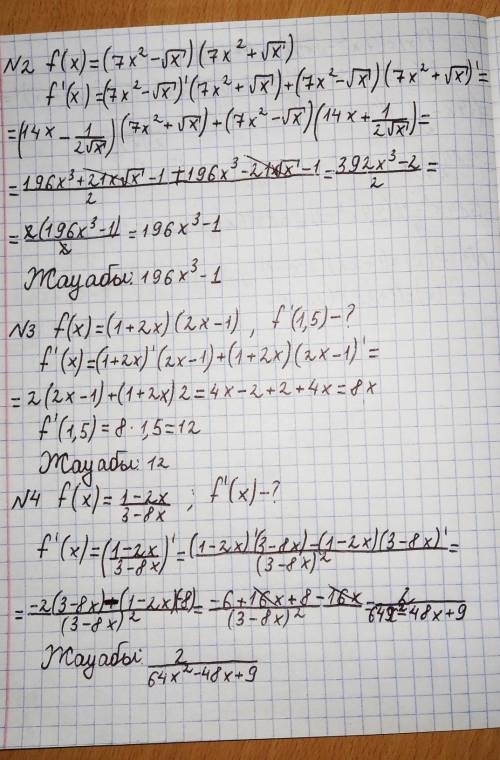 N2 f(x)=(7x²-√x)(7x²+√x)
f'(x)=(7x²-√x)'(7x²+√x)+(7x²-√x)(7x²+√x)'=
=(14x-1/(2√x))(7x²+√x)+(7x²-√x)(14x+1/(2√x))=
=(196x³+21x√x-1+196x³-21x√x-1)/2=(392x³-2)/2=
=2(196x³-1)/2=196x³-1
Жауабы: 196x³-1
N3 f(x)=(1+2x)(2x-1), f'(1,5)-?
f'(x)=(1+2x)'(2x-1)+(1+2x)(2x-1)'=
=2(2x-1)+(1+2x)2=4x-2+2+4x=8x
f'(1,5)=8·1,5=12
Жауабы: 12
N4 f(x)=(1-2x)/(3-8x); f'(x)-?
f'(x)=((1-2x)/(3-8x))'=((1-2x)'(3-8x)-(1-2x)(3-8x)')/(3-8x)²=
=(-2(3-8x)-(1-2x)(-8))/(3-8x)²=(-6+16x+8-16x)/(3-8x)²=2/(64x²-48x+9)
Жауабы: 2/(64x²-48x+9)